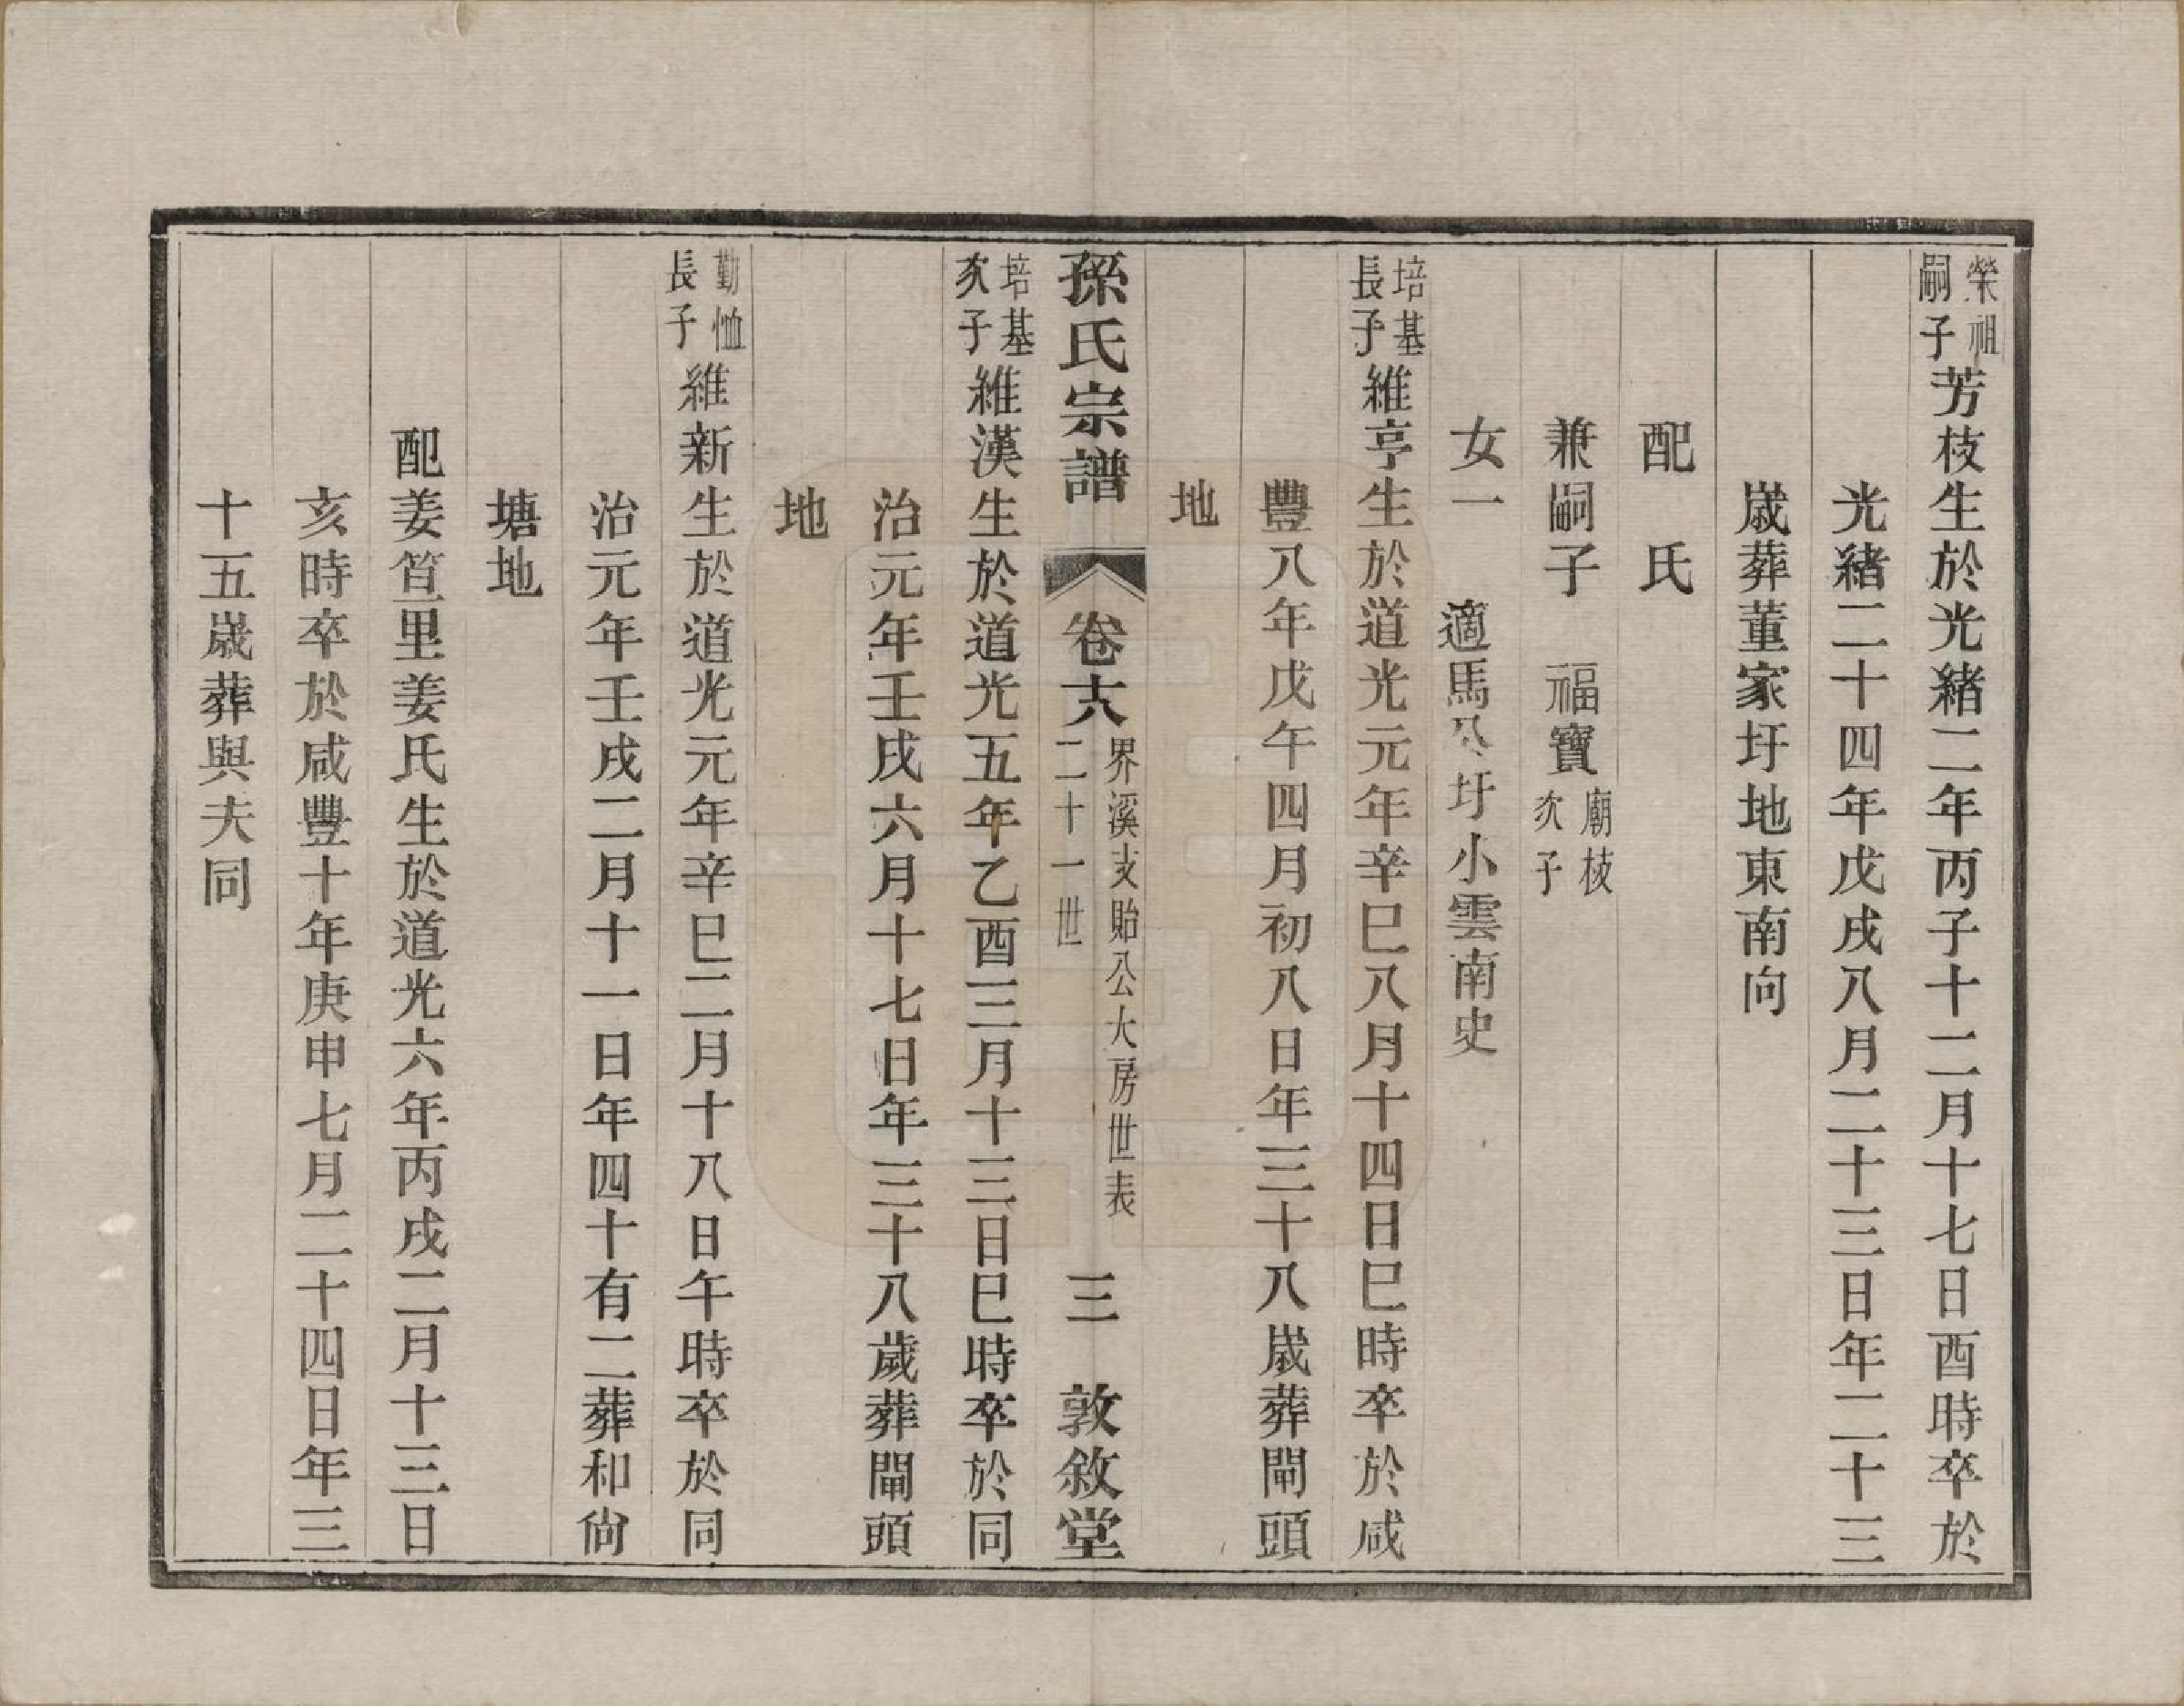 榮祖嗣子芳枝生於光緒二年丙子十二月十七日酉時卒於
光緒二十四年戊戌八月二十三日年二十三
歲葬董家圩地東南向
配　氏
兼嗣子　福寶廟枝次子
女一　適馬公圩小雲南史
培基長子維亨生於道光元年辛巳八月十四日巳時卒於咸
豐八年戊午四月初八日年三十八歲葬閘頭
地
孫氏宗譜　卷十八　界溪支貽公大房世表二十一世　三　敦敘堂
培基次子維漢生於道光五年乙酉三月十三日巳時卒於同
治元年壬戌六月十七日年三十八歲葬閘頭
地
勤恤長子維新生於道光元年辛巳二月十八日午時卒於同
治元年壬戌二月十一日年四十有二葬和尙
塘地
配姜笪里姜氏生於道光六年丙戌二月十三日
亥時卒於咸豐十年庚申七月二十四日年三
十五歲葬與夫同